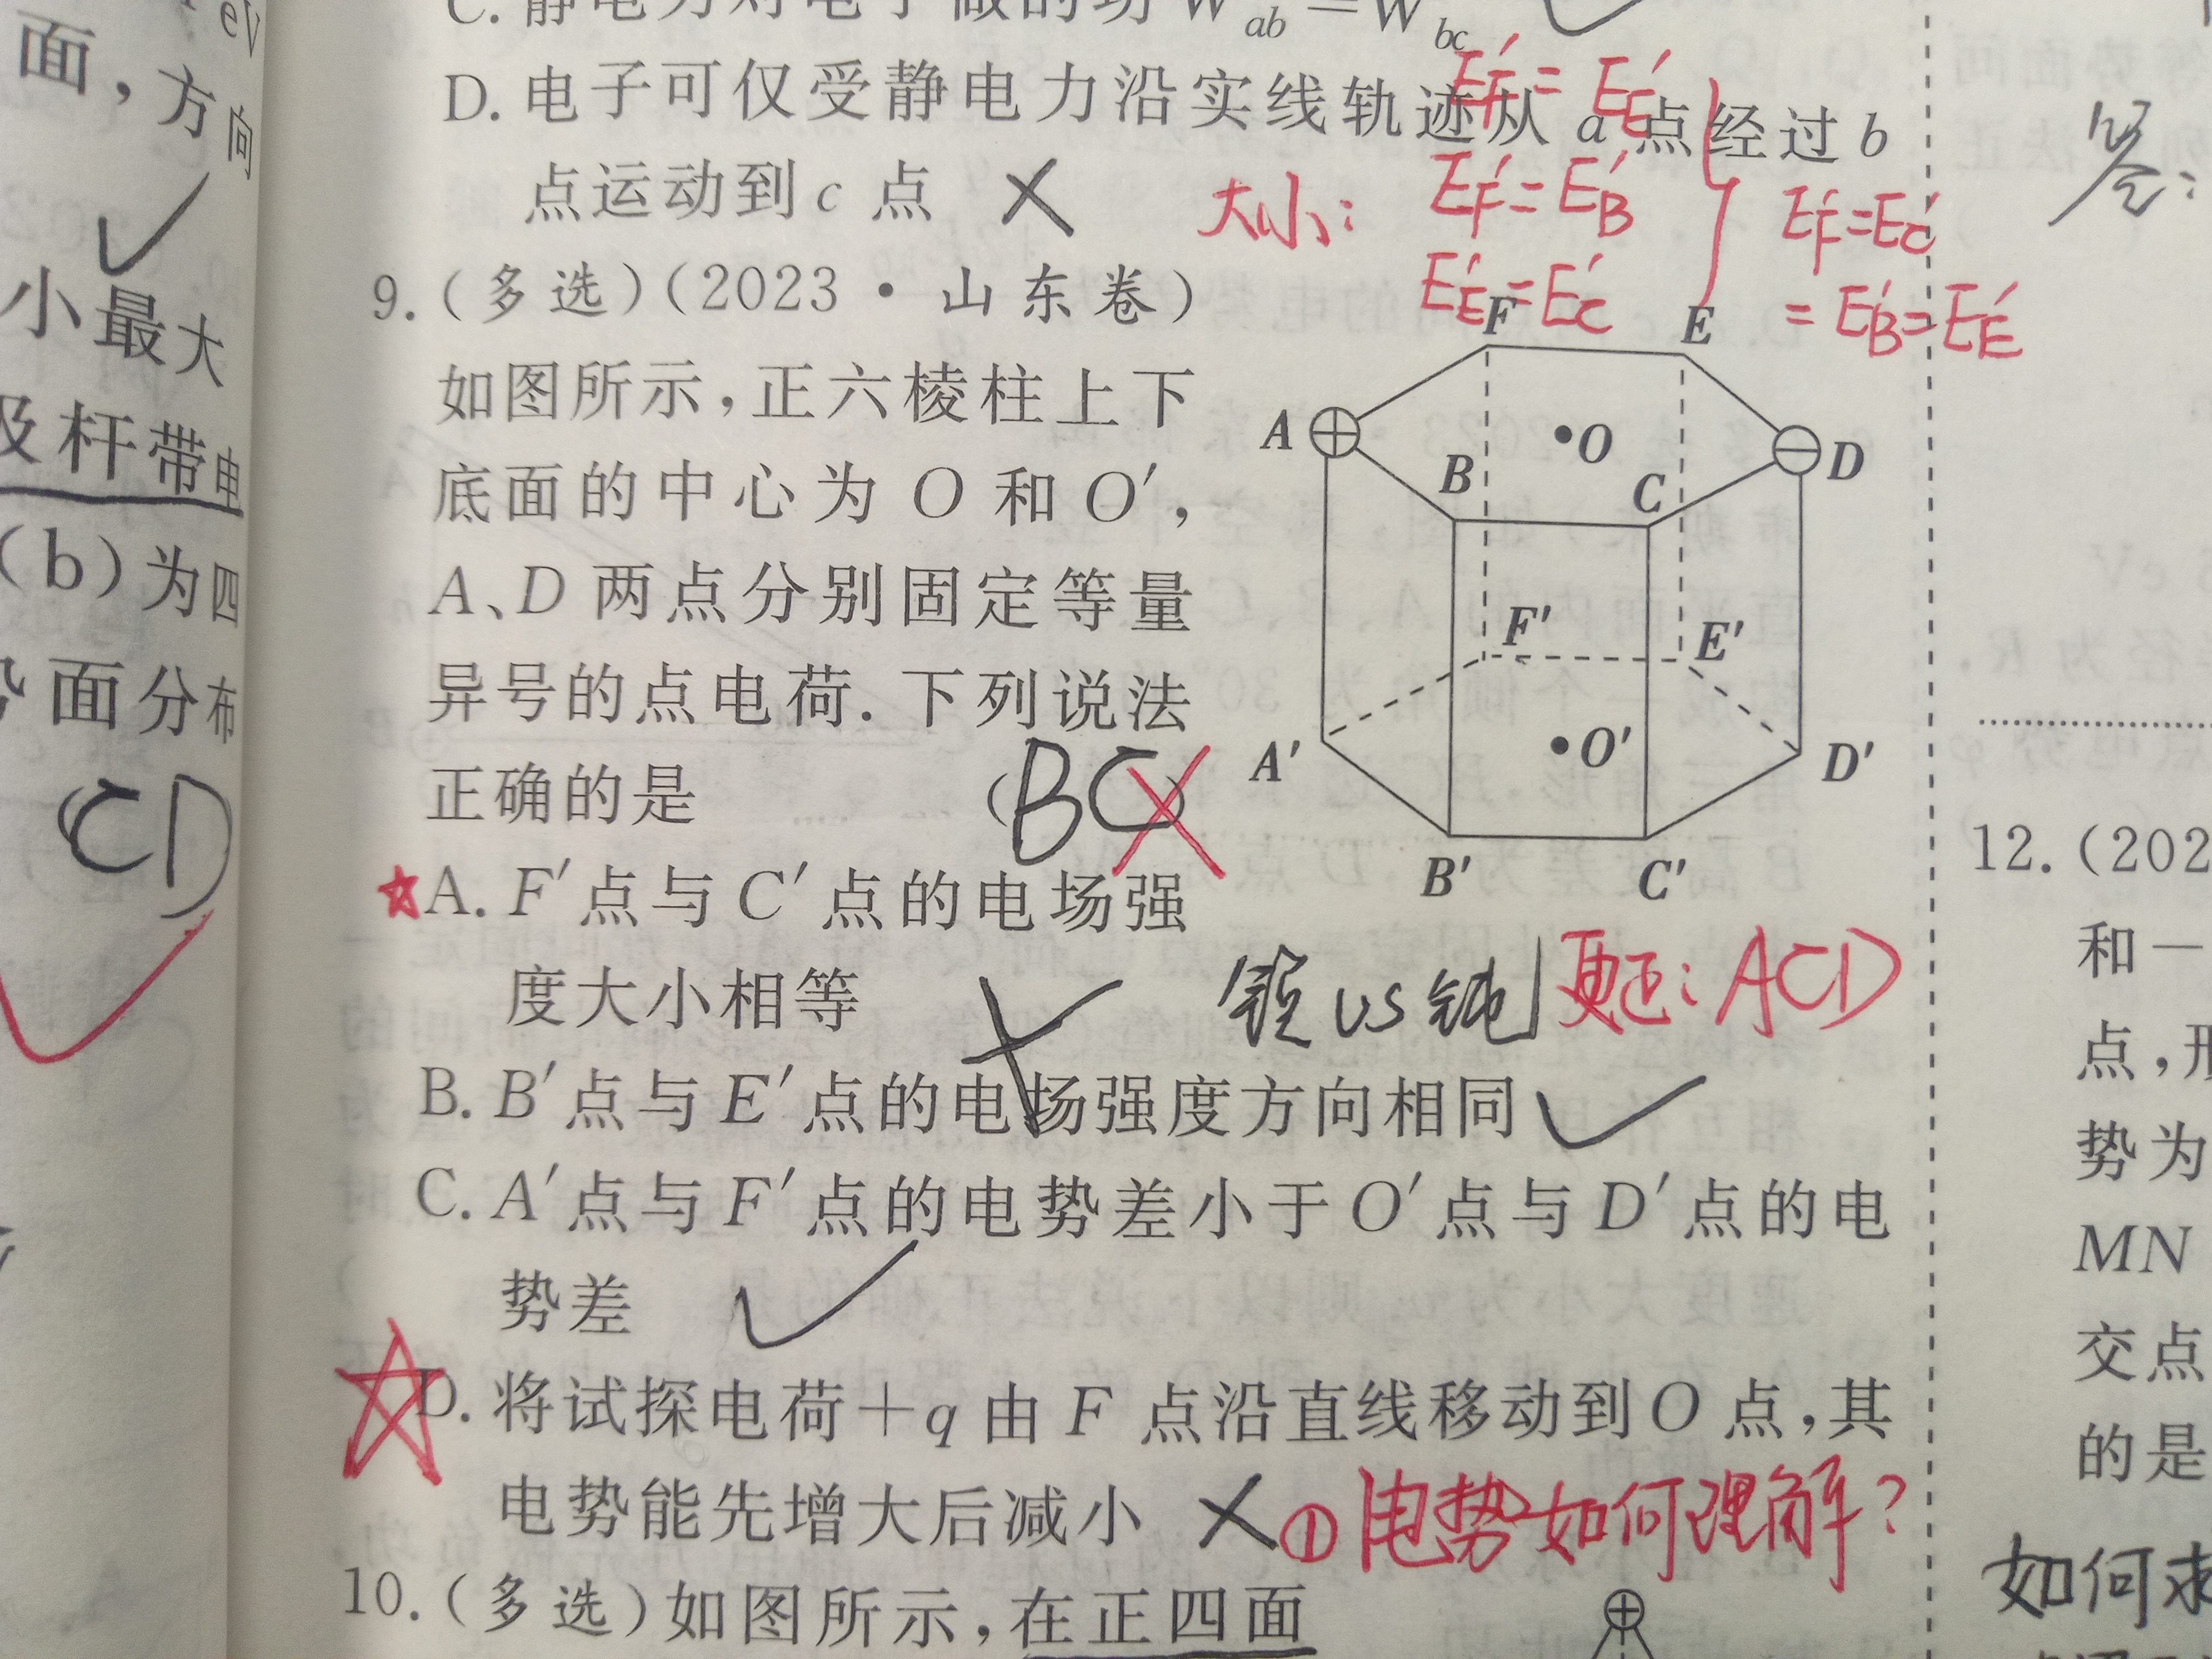 eV
面，方向
小最大
及杆带电
(b)为四
势面分布
CD
C. 静电力对电子做的功 W_ab = W_bc
D. 电子可仅受静电力沿实线轨迹从 a 点经过 b
点运动到 c 点
大小：
E_F′ = E_E′
E_F′ = E_B′
E_E′ = E_C′
E_F′ = E_C′
= E_B′ = E_E′
9. (多选)(2023·山东卷)
如图所示，正六棱柱上下
底面的中心为 O 和 O′，
A、D 两点分别固定等量
异号的点电荷. 下列说法
正确的是 (BC)
F
E
A
O
D
B
C
F′
E′
A′
O′
D′
B′
C′
A. F′点与 C′点的电场强
度大小相等
锐 vs 钝
更正：ACD
B. B′点与 E′点的电场强度方向相同
C. A′点与 F′点的电势差小于 O′点与 D′点的电
势差
D. 将试探电荷＋q 由 F 点沿直线移动到 O 点，其
电势能先增大后减小
①电势如何理解？
10. (多选)如图所示，在正四面
答：
12. (202
和－
点，形
势为
MN
交点
的是
如何求